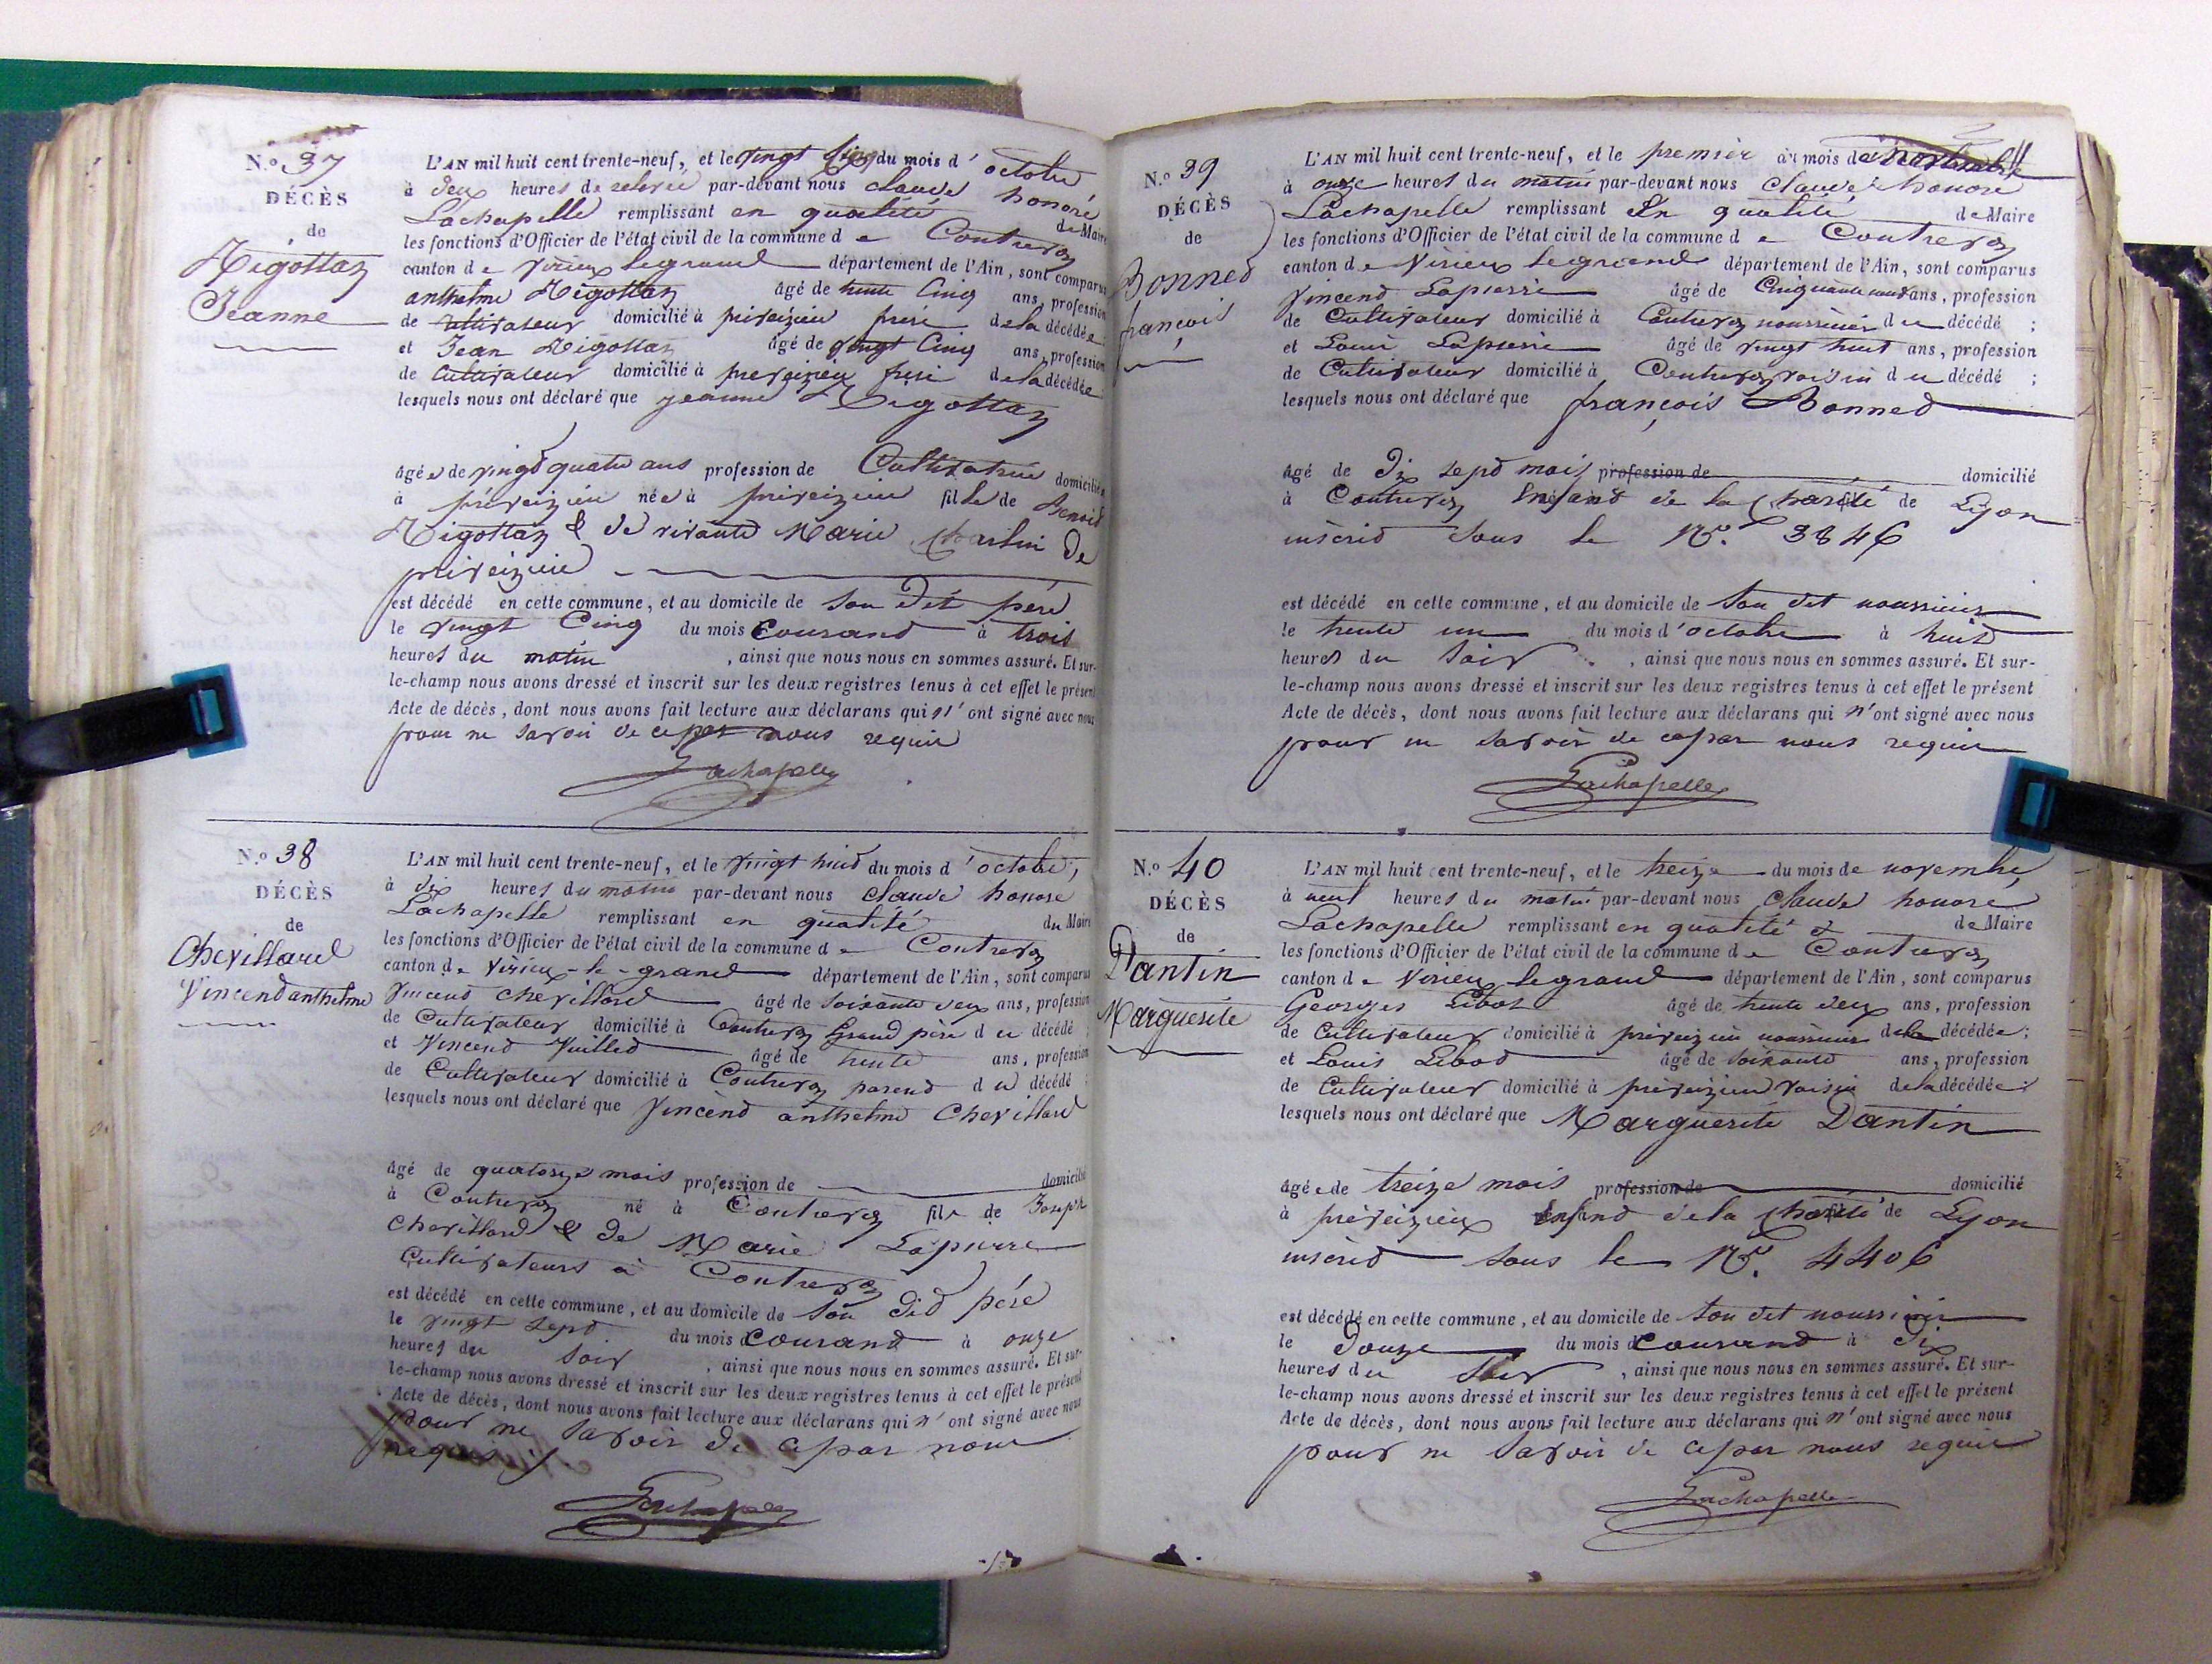 N.o 37
DÉCÈS
de
Jeanne
L'AN mil huit cent trente-neuf, et le vingt Cinq du mois d'octobre
à deux heures de relevée par-devant nous claude honoré
Lachapelle remplissant en qualité de Maire
les fonctions d'Officier de l'état civil de la commune de Contrevoz
canton de Virieux legrand département de l'Ain, sont comparus
anthelme âgé de trente Cinq ans, profession
de cultivateur domicilié à préveizieu frère de la décédée
et Jean âgé de vingt Cinq ans, profession
de Cultivateur domicilié à préveizieu frère de la décédée
lesquels nous ont déclaré que jeanne
âgée de vingt quatre ans profession de Cultivatrice domiciliée
à préveizieu née à préveizieu fille de Benoit
& de vivante Marie de
préveizieu
est décédé en cette commune, et au domicile de son dit père
le vingt Cinq du mois Courand à trois
heures du matin, ainsi que nous nous en sommes assuré. Et sur-
le-champ nous avons dressé et inscrit sur les deux registres tenus à cet effet le présent
Acte de décès, dont nous avons fait lecture aux déclarans qui n'ont signé avec nous
pour ne savoir de ce par nous requis
Lachapelle
N.o 38
DÉCÈS
de
Chevillard
Vincend anthelme
L'AN mil huit cent trente-neuf, et le vingt huit du mois d'octobre,
à dix heures du matin par-devant nous claude honoré
Lachapelle remplissant en qualité du Maire
les fonctions d'Officier de l'état civil de la commune de Contrevoz
canton de Virieux-le-grand département de l'Ain, sont comparus
Vincend chevillard âgé de soixante deux ans, profession
de Cultivateur domicilié à Contrevoz grand père du décédé
et Vincend Vuilled âgé de trente ans, profession
de Cultivateur domicilié à Contrevoz parend du décédé
lesquels nous ont déclaré que Vincend anthelme Chevillard
âgé de quatorze mois profession de domicilié
à Contrevoz né à Contrevoz fils de Joseph
Chevillard & de Marie Lapierre
Cultivateurs à Contrevoz
est décédé en cette commune, et au domicile de son did père
le vingt sept du mois Courand à onze
heures du soir, ainsi que nous nous en sommes assuré. Et sur-
le-champ nous avons dressé et inscrit sur les deux registres tenus à cet effet le présent
Acte de décès, dont nous avons fait lecture aux déclarans qui n'ont signé avec nous
pour ne savoir de ce par nous
requis
Lachapelle
N.o 39
DÉCÈS
de
Bonned
françois
L'AN mil huit cent trente-neuf, et le premier du mois de novembre
à onze heures du matin par-devant nous Claude honoré
Lachapelle remplissant En qualité de Maire
les fonctions d'Officier de l'état civil de la commune de Contrevoz
canton de Virieux legrand département de l'Ain, sont comparus
Vincend Lapierre âgé de ans, profession
de Cultivateur domicilié à Contrevoz nourricier du décédé ;
et Louis Lapierre âgé de vingt huit ans, profession
de Cultivateur domicilié à Contrevoz voisin du décédé ;
lesquels nous ont déclaré que françois Bonned
âgé de Dix sept mois profession de domicilié
à Contrevoz Enfand de la Charité de Lyon
inscrid sous le No. 3846
est décédé en cette commune, et au domicile de son dit nourricier
le trente un du mois d'octobre à huit
heures du soir, ainsi que nous nous en sommes assuré. Et sur-
le-champ nous avons dressé et inscrit sur les deux registres tenus à cet effet le présent
Acte de décès, dont nous avons fait lecture aux déclarans qui n'ont signé avec nous
pour ne savoir de ce par nous requis
Lachapelle
N.o 40
DÉCÈS
de
Dantin
Marguerite
L'AN mil huit cent trente-neuf, et le treize du mois de novembre,
à neuf heures du matin par-devant nous Claude honoré
Lachapelle remplissant en qualité de Maire
les fonctions d'Officier de l'état civil de la commune de Contrevoz
canton de Virieu legrand département de l'Ain, sont comparus
Georges Libod âgé de trente deux ans, profession
de Cultivateur domicilié à préveizieu nourricier de la décédée ;
et Louis Libod âgé de soixante ans, profession
de Cultivateur domicilié à préveizieu voisin de la décédée ;
lesquels nous ont déclaré que Marguerite Dantin
âgée de treize mois profession de domicilié
à préveizieu Enfand de la Charité de Lyon
inscrid sous le No. 4406
est décédé en cette commune, et au domicile de son dit nourricier
le Douze du mois Courand à Dix
heures du soir, ainsi que nous nous en sommes assuré. Et sur-
le-champ nous avons dressé et inscrit sur les deux registres tenus à cet effet le présent
Acte de décès, dont nous avons fait lecture aux déclarans qui n'ont signé avec nous
pour ne savoir de ce par nous requis
Lachapelle